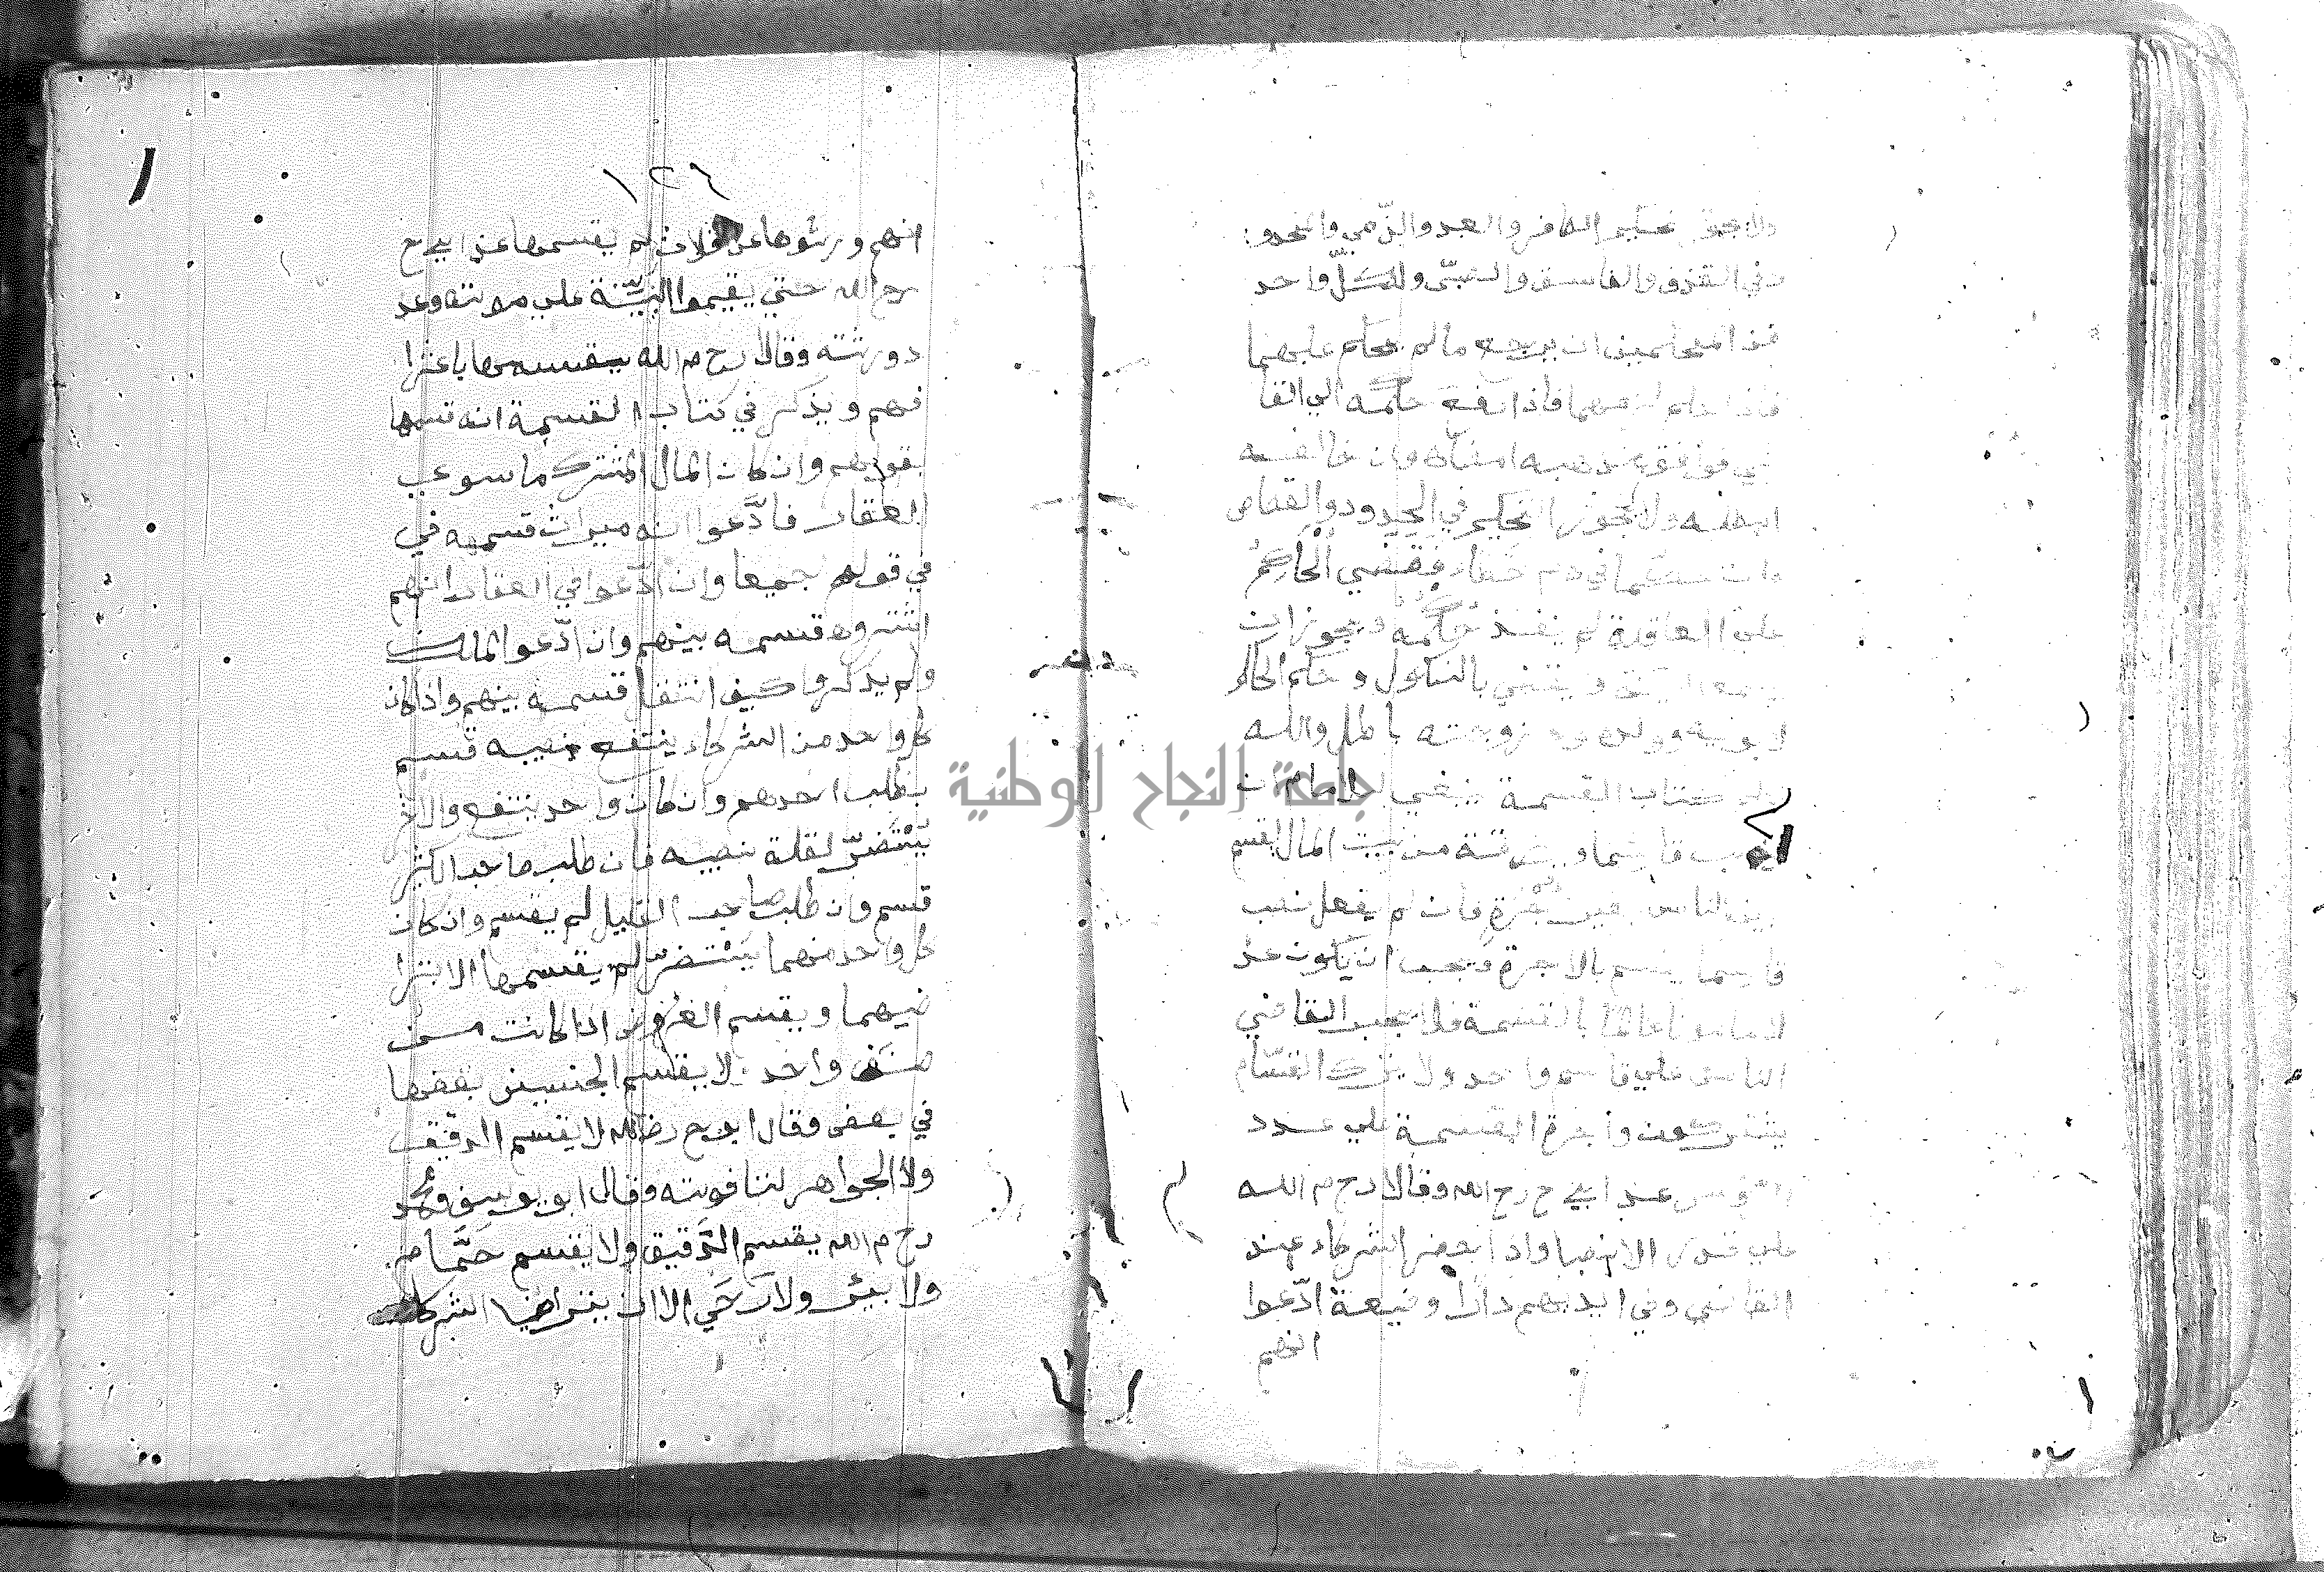 ولا يجوز تحكيم الكافر والعبد والذمي والمحدود
في القذف والفاسق والصبي ولكل واحد
من المحكمين ان يرجع ما لم يحكم عليهما
فاذا حكم لزمهما فاذا رفع حكمه الي القا
ضي فوافق مذهبه امضاه وان خالفه
ابطله ولا يجوز التحكيم في الحدود والقصاص
وان حكما في دم خطاء فقضي الحاكم
علي العاقلة لم ينفذ حكمه ويجوز ان
يسمع البينة ويقضي بالنكول وحكم الحاكم
لابويه وولده وزوجته باطل والله
اعلم كتاب القسمة ينبغي للامام ان
ينصب قاسما ويرزقه من بيت المال ليقسم
بين الناس بغير اجرة فان لم يفعل نصب
قاسما يقسم بالاجرة ويجب ان يكون عد
لا مامونا عالما بالقسمة فلا يجبر القاضي
الناس علي قاسم واحد ولا يترك القسام
يشتركون واجرة القسمة علي عدد
الرؤس عند ابي ح رح الله وقالا رح م الله
علي قدر الانصبا واذا حضر الشركاء عند
القاضي وفي ايديهم دارا وضيعة ادّعوا
انهم
١٢٦
انهم ورثوها عن فلان لم يقسمها عند ابي ح
رح الله حتي يقيموا البيّنة علي موته وعد
د ورثته وقالا رح م الله يقسمها باعترا
فهم ويذكر في كتاب القسمة انه قسمها
بقولهم وان كان المال المشترك ما سوي
العقار فادّعوا انه ميراث قسمه في
في قولهم جميعا وان ادّعوا في العقار انهم
اشتروه قسمه بينهم وان ادّعوا الملك
ولم يذكروا كيف انتقل قسمه بينهم واذا كان
كل واحد من الشركاء ينتفع بنصيبه قسم
بطلب احدهم وان كان واحد ينتفع والاخر
يستضرّ لقلة نصيبه فان طلب صاحب الكثير
قسم وان طلب صاحب القليل لم يقسم وان كان
كل واحد منهما يستضرّ لم يقسمها الا بترا
ضيهما ويقسم العروض اذا كانت من
صنف واحد لا يقسم الجنسين بعضها
في بعض وقال ابو ح رح الله لا يقسم الرقيق
ولا الجواهر لتفاوته وقال ابو يوسف ومحمد
رح م الله يقسم الرّقيق ولا يقسم حمّام
ولا بيئر ولا رحي الا ان يتراضيا الشركاء
جامعة النجاح الوطنية